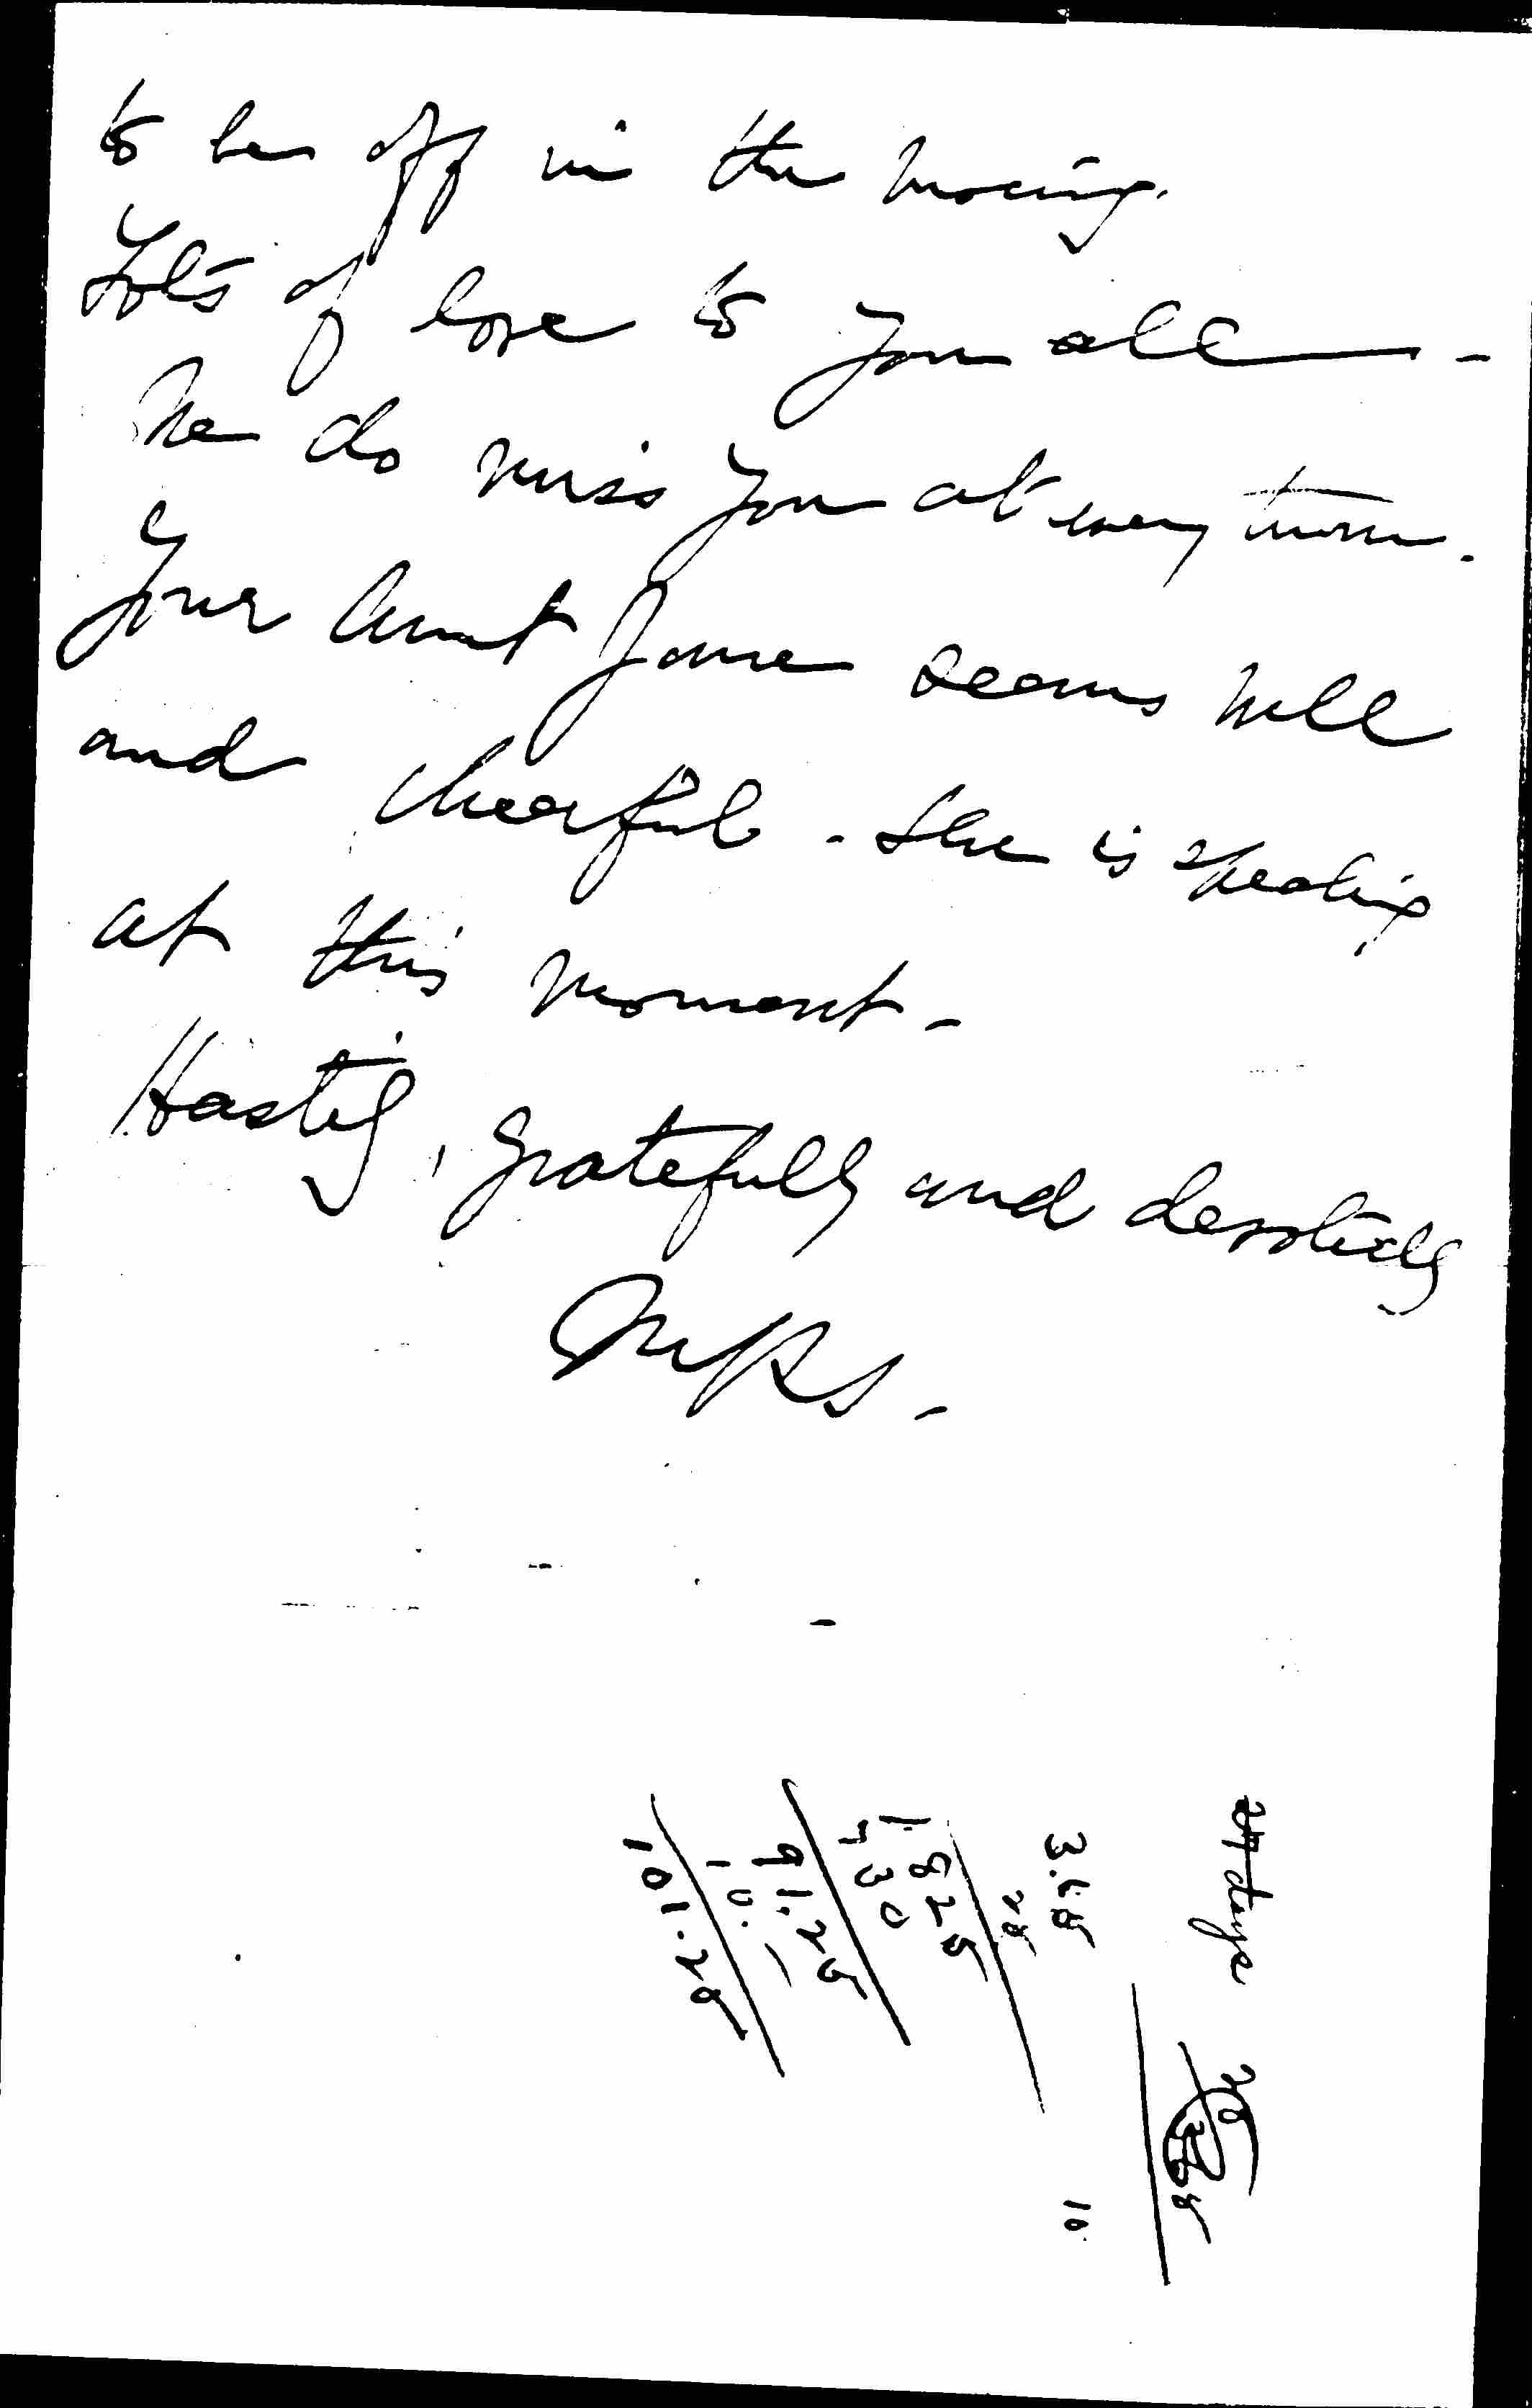 to be off in the morning.
Lots of love to you all —
We do miss you at every turn.
Your Aunt Jane seems well
and cheerful - She is speaking
at this moment -
Hastily, gratefully and devotedly
days
3.65
25
1825
730
91.25
10.
101.25
10.